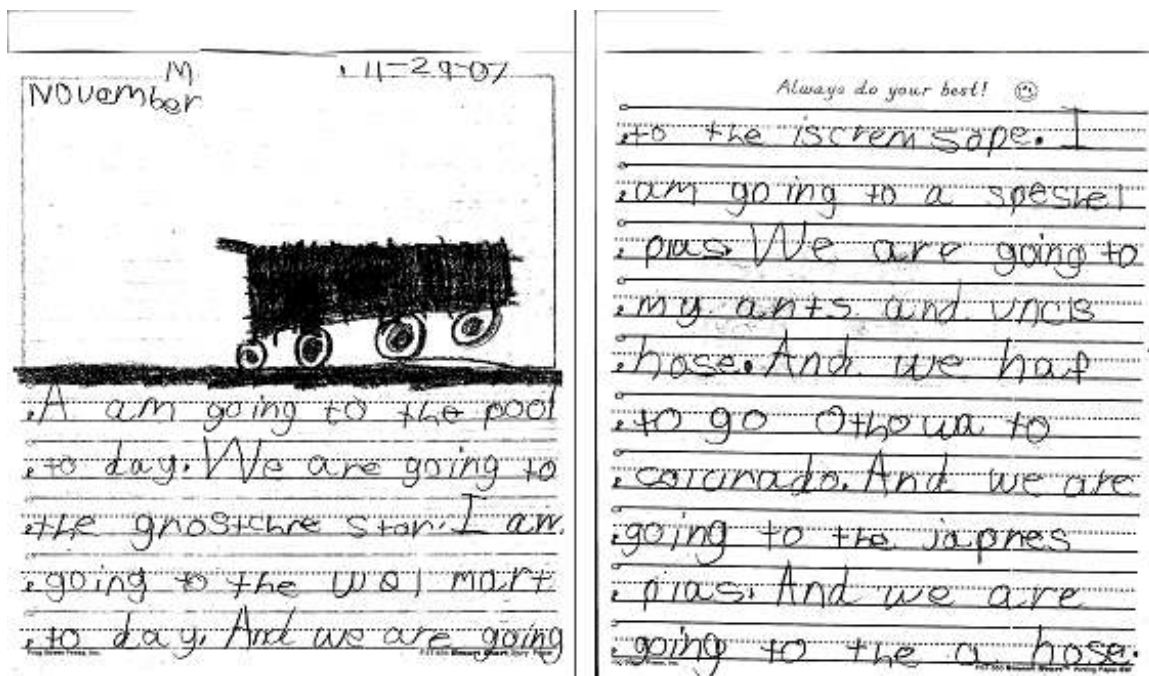 M
November
11-29-07
A am going to the pool
to day. We are going to
the gnostchre stor. I am
going to the wol mart
to day. And we are going
Always do your best!
to the iscrem sope. I
am going to a speshel
plas. We are going to
my ants and uncls
hose. And we haf
to go Othowa to
colcinado. And we are
going to the japnes
plas. And we are
going to the a hose.